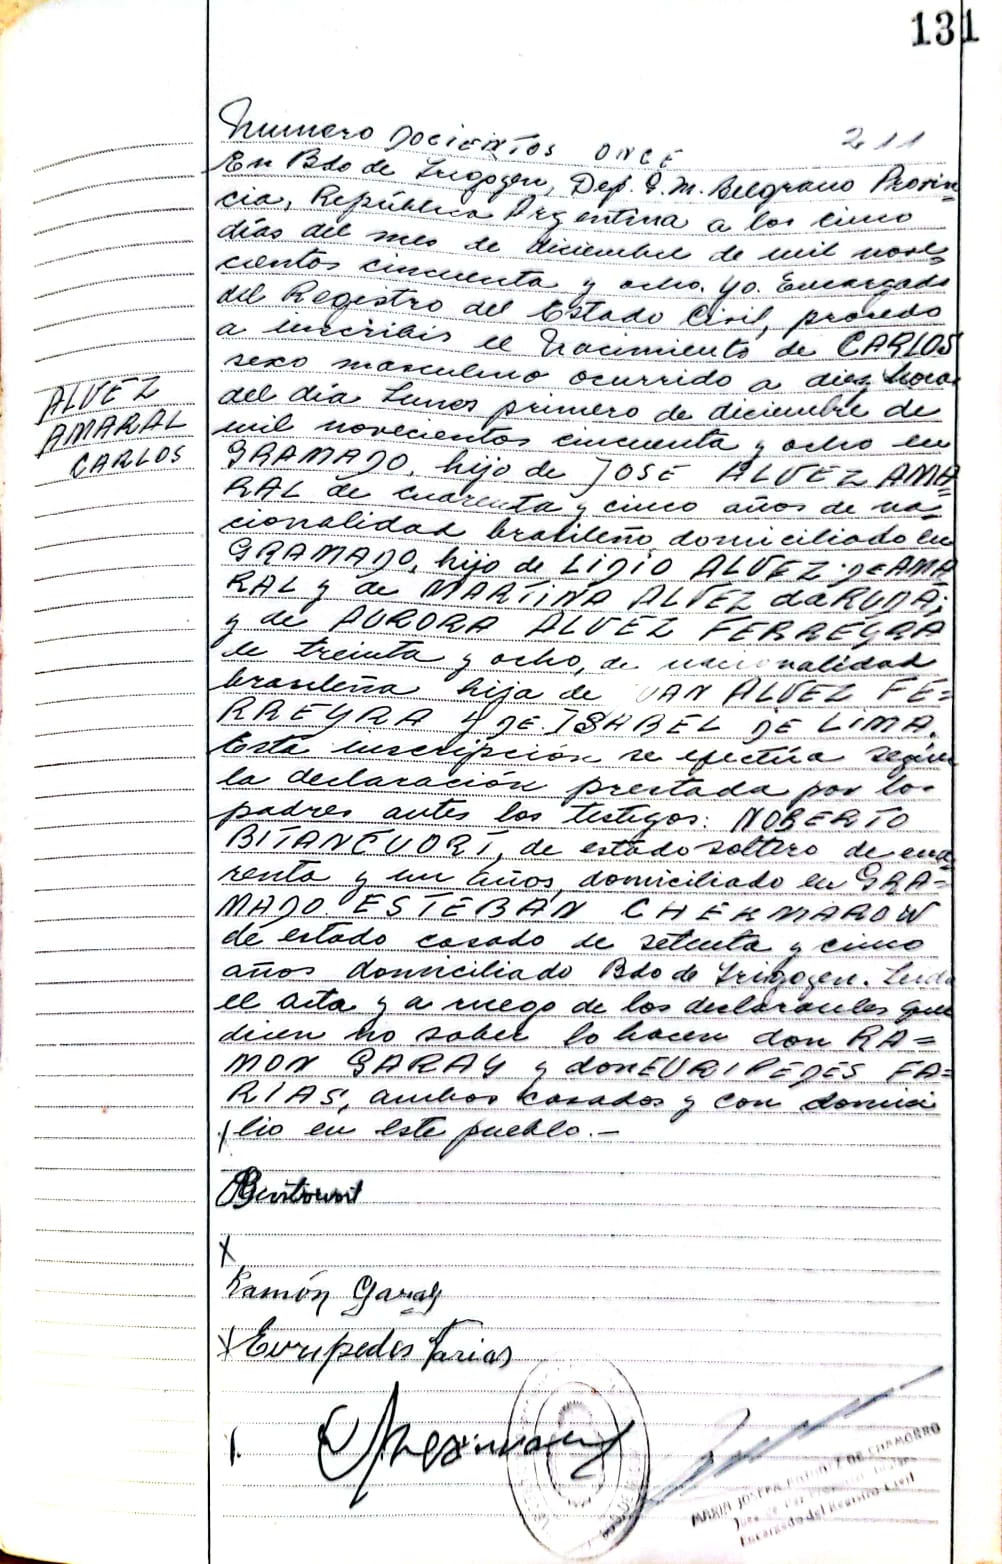 131
Numero DOCIENTOS ONCE 211
En Bdo de Irigoyen, Dep. G. M. Belgrano Provin=
cia, República Argentina a los cinco
días del mes de diciembre de mil nove=
cientos cincuenta y ocho. Yo. Encargado
del Registro del Estado Civil, procedo
a inscribir el Nacimiento de CARLOS
sexo masculino ocurrido a diez horas
del día Lunes primero de diciembre de
mil novecientos cincuenta y ocho en
GRAMADO, hijo de JOSE ALVEZ AMA=
RAL de cuarenta y cinco años de na=
cionalidad brasileño domiciliado en
GRAMADO, hijo de LIDIO ALVEZ DE AMA
RAL y de MARTINA ALVEZ da RUDA;
y de AURORA ALVEZ FERREYRA
de treinta y ocho, de nacionalidad
brasileña hija de JUAN ALVEZ FE=
RREYRA Y DE ISABEL DE LIMA.
Esta inscripción se efectúa según
la declaración prestada por los
padres antes los testigos: NOBERTO
BITANCUORT, de estado soltero de cua
renta y un años, domiciliado en GRA=
MADO ESTEBAN CHEKMAROW
de estado casado de setenta y cinco
años domiciliado Bdo de Irigoyen. Leida
el acta y a ruego de los declarantes que
dicen no saber lo hacen don RA=
MON GARAY y don EURIPEDES FA=
RIAS, ambos casados y con domici
lio en este pueblo.-
ALVEZ
AMARAL
CARLOS
X
Ramón Garay
X Euripedes Farias
MARIA JOSEFA DE CHAMORRO
Juez de Paz
Encargado del Registro Civil